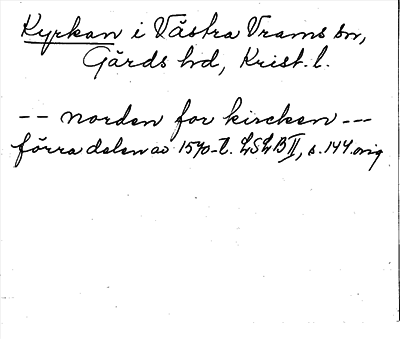 Kyrkan i Västra Vrams sn,
Gärds hd, Krist. l.
-- norden for kircken ---
förra delen av 1570-t. LSLB II, s. 144. orig